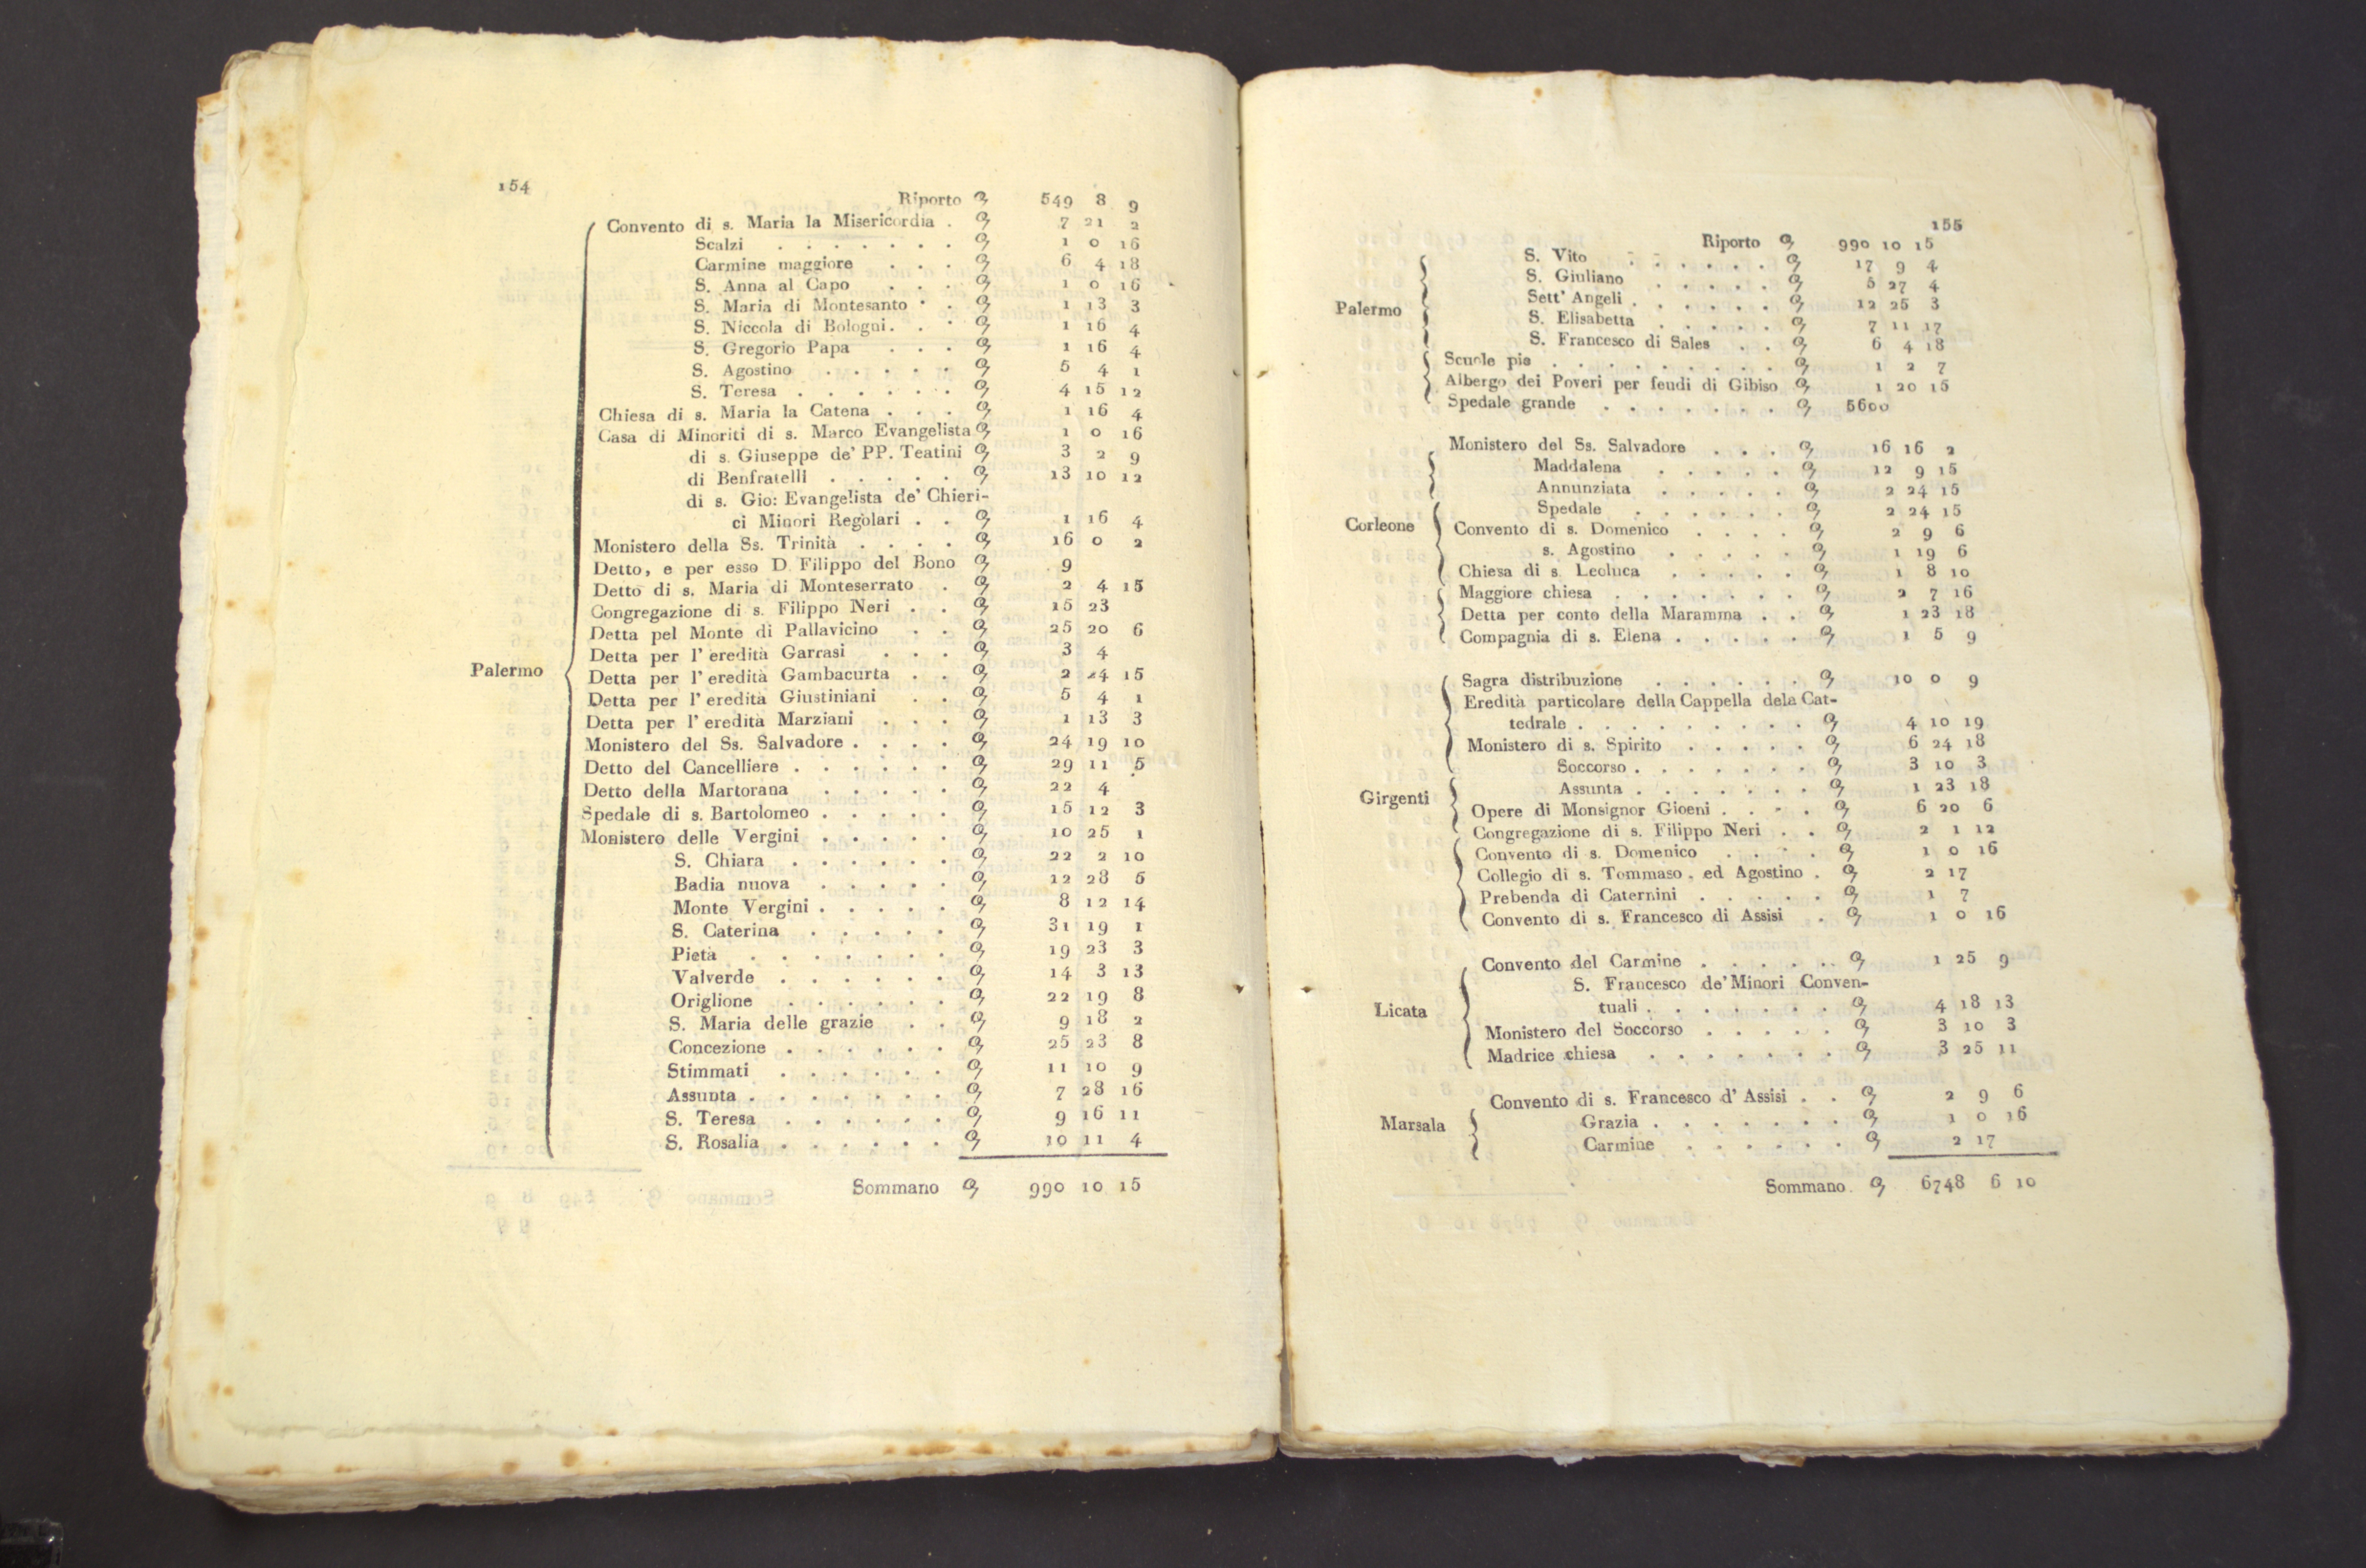 154
Riporto 549 8 9
Convento di s. Maria la Misericordia . 7 21 2
Scalzi . . . . . . . 1 0 16
Carmine maggiore . . . 6 4 18
S. Anna al Capo . . . 1 0 16
S. Maria di Montesanto . . 1 13 3
S. Niccola di Bologni . . . 1 16 4
S. Gregorio Papa . . . 1 16 4
S. Agostino . . . . . 5 4 1
S. Teresa . . . . . . 4 15 12
Chiesa di s. Maria la Catena . . . 1 16 4
Casa di Minoriti di s. Marco Evangelista 1 0 16
di s. Giuseppe de' PP. Teatini 3 2 9
di Benfratelli . . . . . 13 10 12
di s. Gio: Evangelista de' Chieri-
ci Minori Regolari . . 1 16 4
Monistero della Ss. Trinità . . . . 16 0 2
Detto, e per esso D. Filippo del Bono 9
Detto di s. Maria di Monteserrato . . 2 4 15
Congregazione di s. Filippo Neri . . 15 23
Detta pel Monte di Pallavicino . . 25 20 6
Detta per l' eredità Garrasi . . . 3 4
Palermo
Detta per l' eredità Gambacurta . . 2 24 15
Detta per l' eredità Giustiniani . . 5 4 1
Detta per l' eredità Marziani . . . 1 13 3
Monistero del Ss. Salvadore . . . . 24 19 10
Detto del Cancelliere . . . . . . 29 11 5
Detto della Martorana . . . . . 22 4
Spedale di s. Bartolomeo . . . . . 15 12 3
Monistero delle Vergini . . . . . 10 25 1
S. Chiara . . . . . . 22 2 10
Badia nuova . . . . . 12 28 5
Monte Vergini . . . . . 8 12 14
S. Caterina . . . . . 31 19 1
Pietà . . . . . . . 19 23 3
Valverde . . . . . . 14 3 13
Origlione . . . . . . 22 19 8
S. Maria delle grazie . . 9 18 2
Concezione . . . . . . 25 23 8
Stimmati . . . . . . 11 10 9
Assunta . . . . . . . 7 28 16
S. Teresa . . . . . . 9 16 11
S. Rosalia . . . . . . 10 11 4
Sommano 990 10 15
155
Riporto 990 10 15
S. Vito . . . . . . 17 9 4
S. Giuliano . . . . . 5 27 4
Sett' Angeli . . . . . . 12 25 3
Palermo
S. Elisabetta . . . . . 7 11 17
S. Francesco di Sales . . 6 4 18
Scuole pie . . . . . . . . . 1 2 7
Albergo dei Poveri per feudi di Gibiso 1 20 15
Spedale grande . . . . . . . 5600
Monistero del Ss. Salvadore . . . 16 16 2
Maddalena . . . . . 12 9 15
Annunziata . . . . . 2 24 15
Spedale . . . . . . 2 24 15
Corleone
Convento di s. Domenico . . . . 2 9 6
s. Agostino . . . . . 1 19 6
Chiesa di s. Leoluca . . . . . 1 8 10
Maggiore chiesa . . . . . . . 2 7 16
Detta per conto della Maramma . . 1 23 18
Compagnia di s. Elena . . . . . 1 5 9
Sagra distribuzione . . . . . . 10 0 9
Eredità particolare della Cappella dela Cat-
tedrale . . . . . . . . . 4 10 19
Monistero di s. Spirito . . . . . 6 24 18
Soccorso . . . . . . . 3 10 3
Assunta . . . . . . . 1 23 18
Girgenti
Opere di Monsignor Gioeni . . . . 6 20 6
Congregazione di s. Filippo Neri . . 2 1 12
Convento di s. Domenico . . . . 1 0 16
Collegio di s. Tommaso , ed Agostino . 2 17
Prebenda di Caternini . . . . . 1 7
Convento di s. Francesco di Assisi . 1 0 16
Convento del Carmine . . . . . . 1 25 9
S. Francesco de' Minori Conven-
tuali . . . . . . . 4 18 13
Licata
Monistero del Soccorso . . . . . 3 10 3
Madrice chiesa . . . . . . . 3 25 11
Convento di s. Francesco d' Assisi . . 2 9 6
Marsala
Grazia . . . . . . . 1 0 16
Carmine . . . . . . 2 17
Sommano 6748 6 10